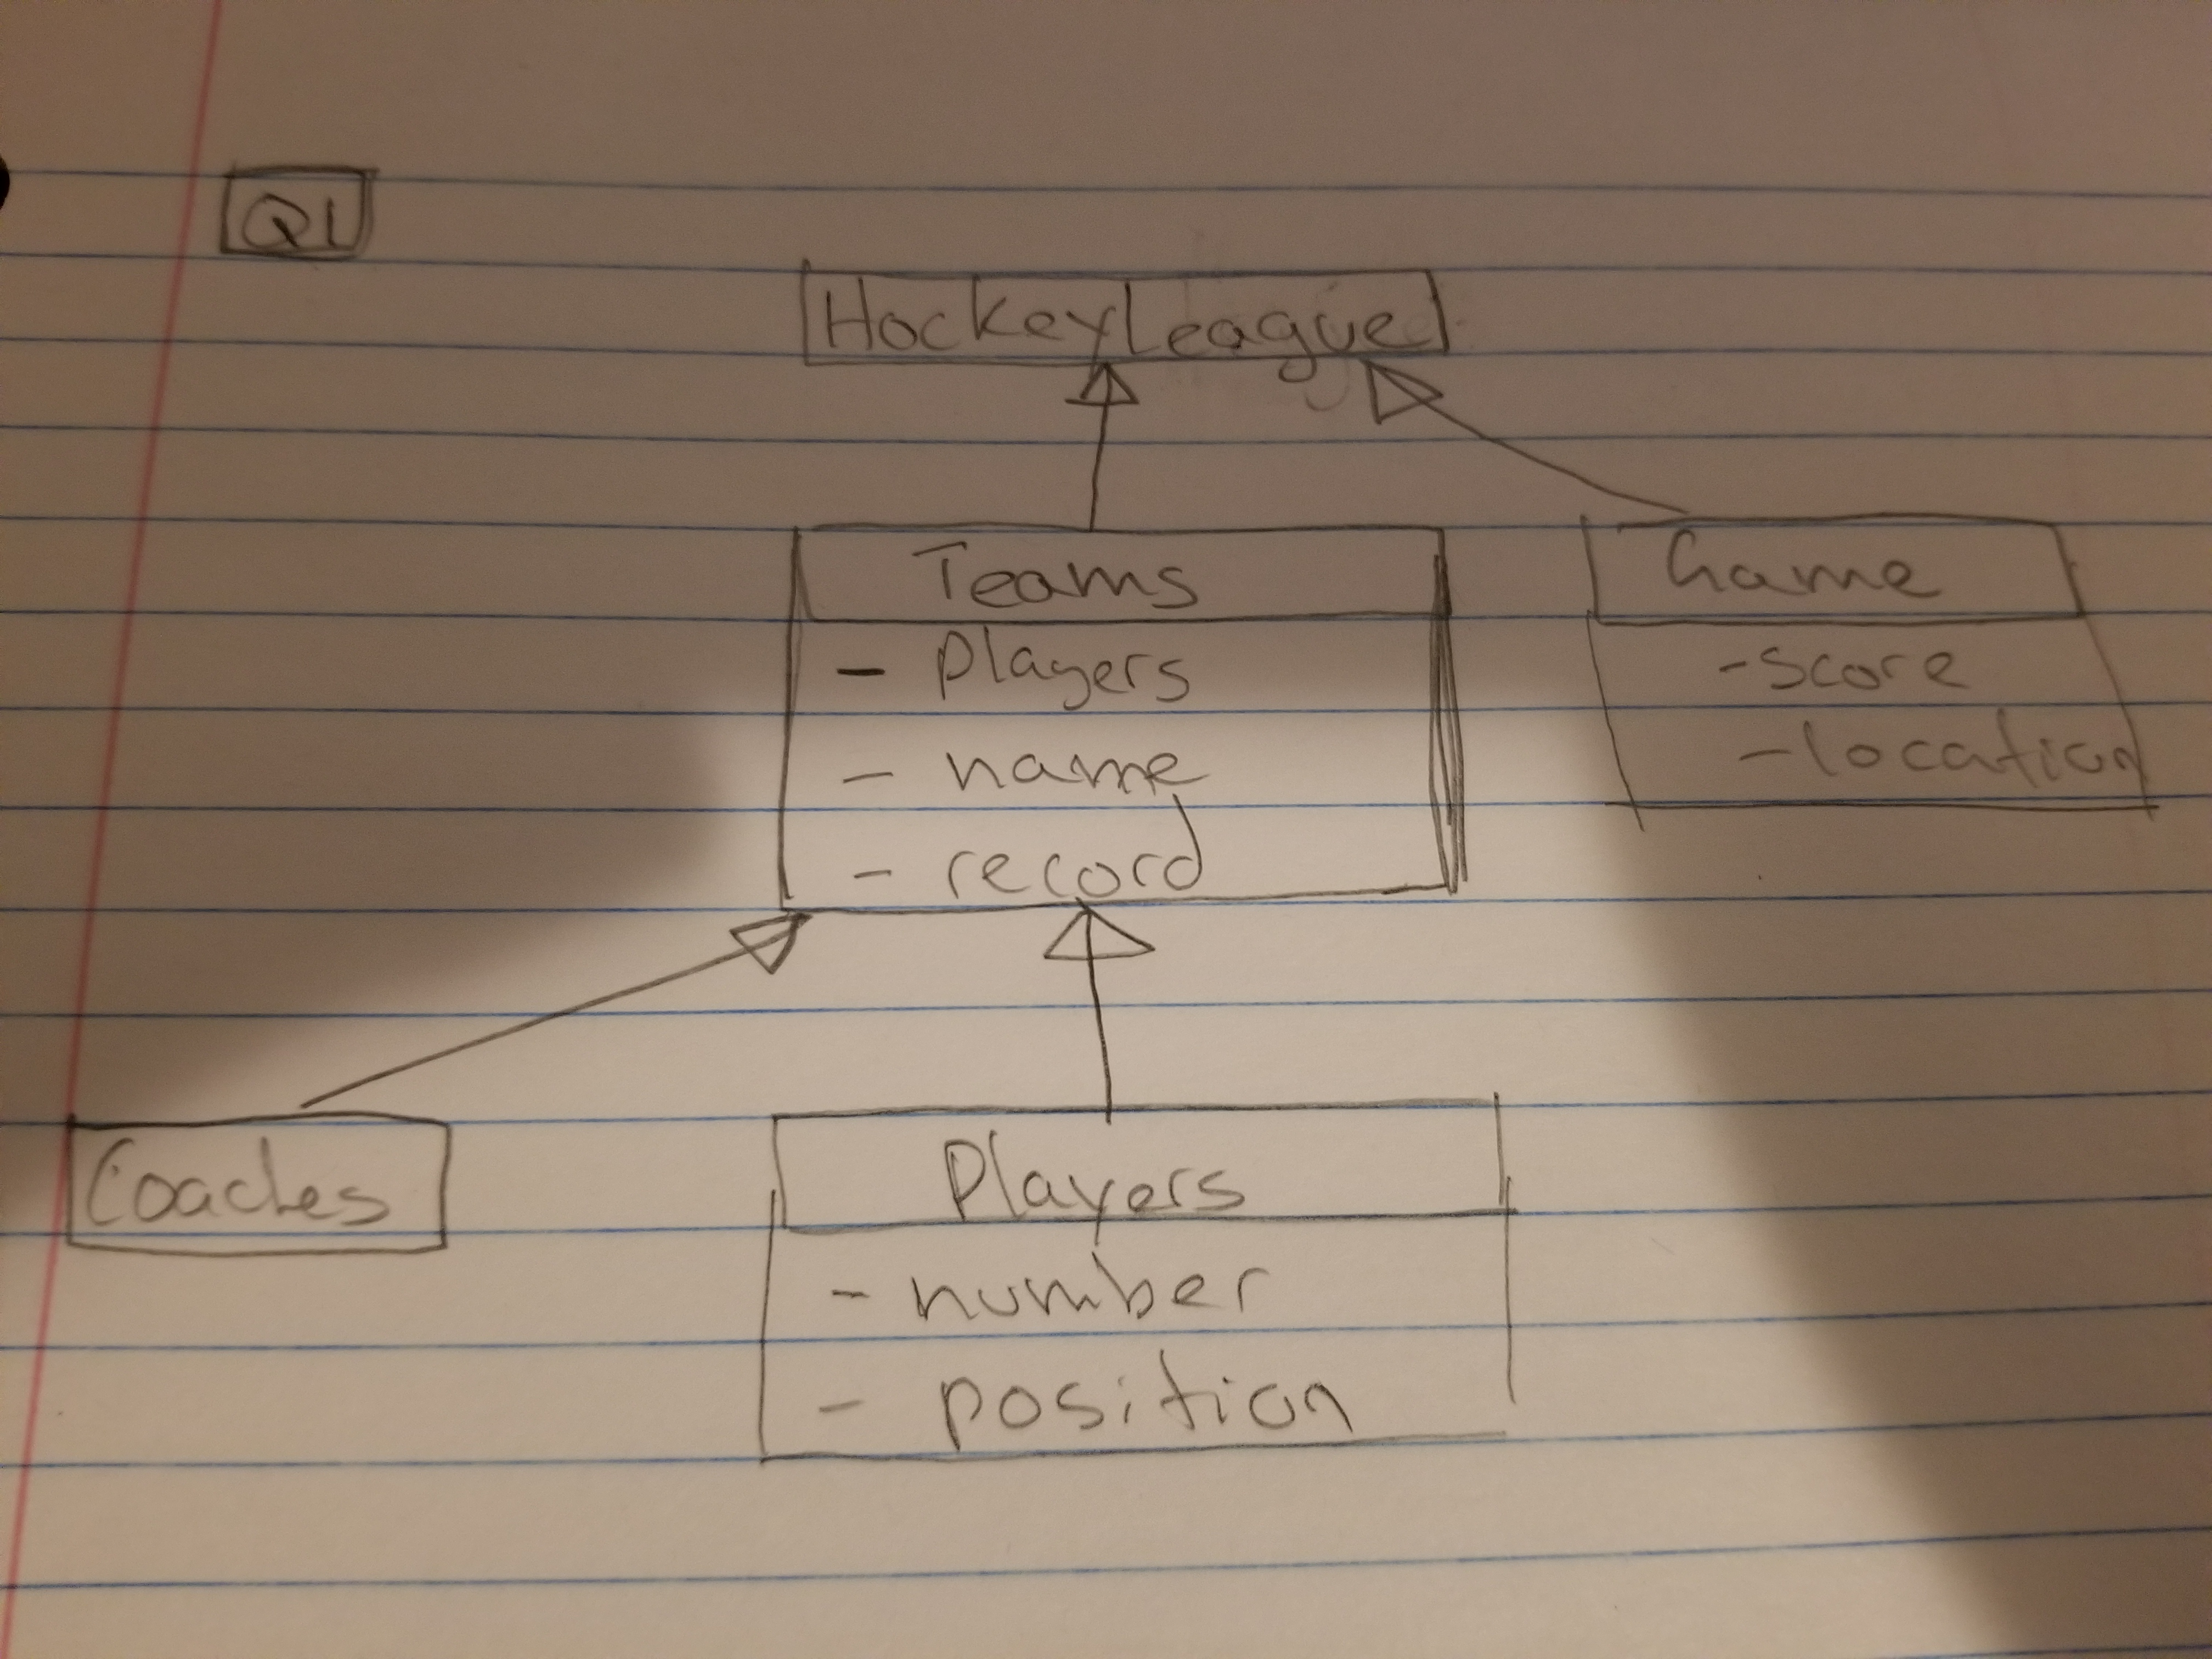 Q1
HockeyLeague
Teams
- players
- name
- record
Game
- score
- location
Coaches
Players
- number
- position